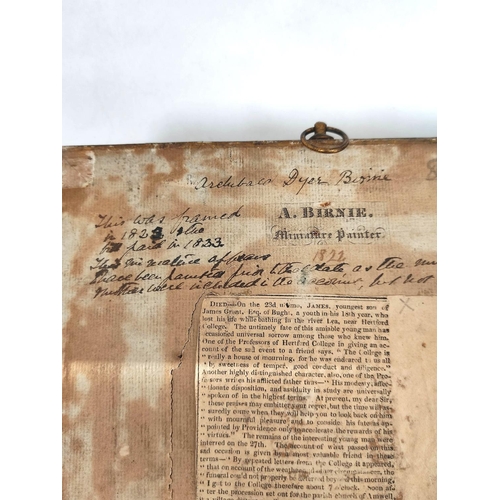 Archibald Dyer Birnie
This was framed
in 1823 who
paid in 1833
A. BIRNIE.
Miniature Painter.
1822
This miniature appears
have been painted prior to the date, as the
were included in the account, but not
DIED—On the 23d ultimo, JAMES, youngest son of
James Grant, Esq. of Bught, a youth in his 18th year, who
lost his life while bathing in the river Lea, near Hertford
College. The untimely fate of this amiable young man has
occasioned universal sorrow among those who knew him.
One of the Professors of Hertford College in giving an ac-
count of the sad event to a friend says, "The College is
really a house of mourning, for he was endeared to us all
by sweetness of temper, good conduct and diligence."
Another highly distinguished character, also, one of the Pro-
fessors writes his afflicted father thus—"His modesty, affec-
tionate disposition, and assiduity in study are universally
spoken of in the highest terms. At present, my dear Sir,
these praises may embitter your regret, but the time will as-
suredly come when they will help you to look back on him
with mournful pleasure and to consider his fate as ap-
pointed by Providence only to accelerate the rewards of his
virtue." The remains of the interesting young man were
interred on the 27th. The account of what passed on this
occasion is given by a most valuable friend in these
terms—"By repeated letters from the College it appeared,
that on account of the weather the
funeral could not properly be deferred beyond this morning,
I got to the College therefore about 7 o'clock. Soon af-
ter the procession set out for the parish church of Amwell,